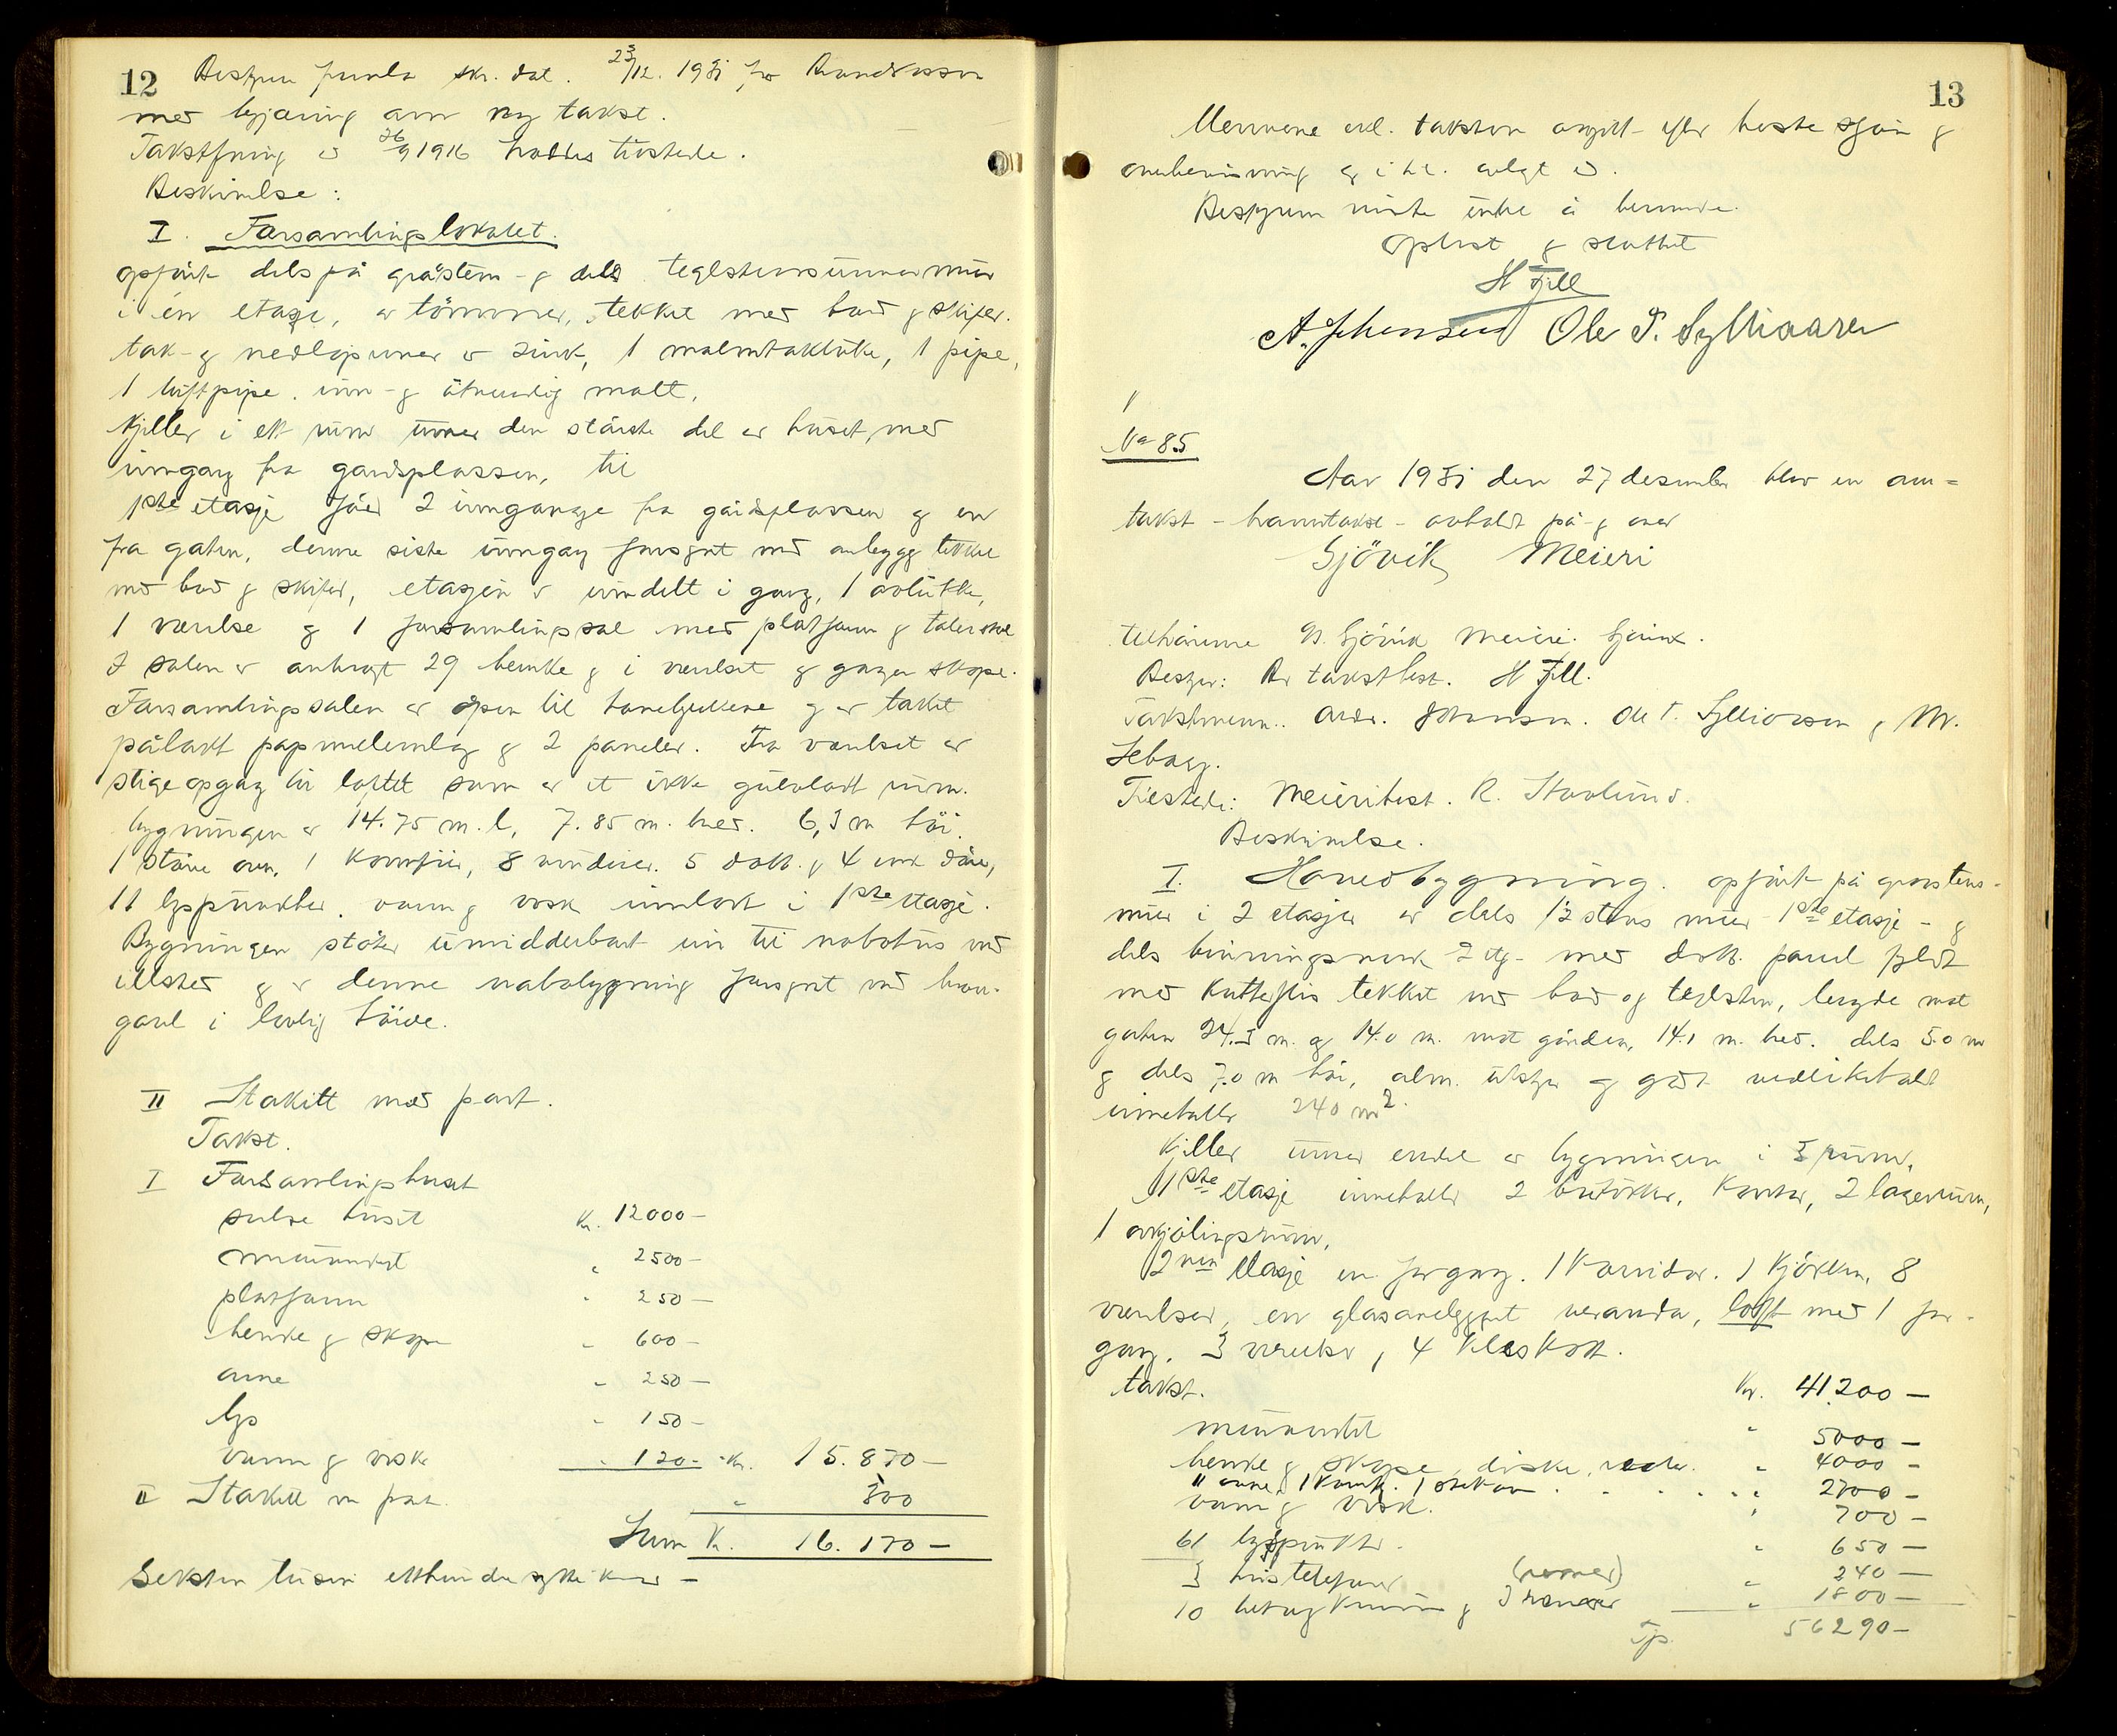 12
Bestyrer fremla skr. dat. 23/12. 1931 fra
med begjæring om ny takst.
Takstfning av 26/9 1916 holdtes tilstede.
Beskrivelse:
I. Forsamlingslokalet.
opført dels på gråsten- og dels teglstensunnermur
i én etasje, av tømmer, tekket med bord og skifer.
tak- og nedløpsrenner av sink, 1 malmtakluke, 1 pipe,
1 luftpipe. inn- og utvendig malt.
Kjeller i ett rum unner den største del av huset, med
inngang fra gårdsplassen, til
1ste etasje fører 2 innganger fra gårdsplassen og en
fra gaten, denne siste inngang forsynt med anbygg tekket
med bord og skifer, etasjen er inndelt i gang, 1 avlukke,
1 værelse og 1 forsamlingssal med platform og talerstol
I salen er anbragt 29 benke og i værelset og gangen skape.
Forsamlingssalen er åpen til hanebjelkene og er taket
pålagt papmellemlag og 2 paneler. Fra værelset er
stigeopgang til loftet som er et ikke gulvlagt rum.
bygningen er 14.75 m. l, 7.85 m. bred. 6,3 m høi.
1 større ovn, 1 komfyr, 8 vinduer. 5 dobb. og 4 enk. døre,
11 lyspunkter. vann og vask innlagt i 1ste etasje.
Bygningen støter umiddelbart inn til nabohus ved
ildsted og er denne nabobygning forsynt med bran-
gavl i lovlig høide.
II Stakitt med port.
Takst.
I Forsamlingshuset
selve huset Kr. 12000 —
murverket " 2500 —
platform " 250 —
benke og skape " 600 —
ovne " 250 —
lys " 150 —
vann og vask " 120 - Kr. 15.870 —
II Stakitt m port. " 300
Sum Kr. 16.170 —
Seksten tusen etthundreogsytti kroner —
13
Mennene erkl. taksten avgitt efter beste skjønn og
overbevisning og i h.t. avlagt ed.
Bestyreren visste intet å bemerke.
Oplest og sluttet
H Fjell
A. Johansen Ole T. Sylliaasen
No 85
Aar 1931 den 27 desember blev en om-
takst - branntakst - avholdt på og over
Gjövik Meieri
tilhørende A/S. Gjøvik Meieri. Gjøvik.
Bestyr: Br takstbest. H Fjell.
Takstmenn.. Andr. Johansen. Ole T. Sylliaasen og M.
Seberg.
Tilstede: Meieribest. R. Stavlund.
Beskrivelse.
I. Hovedbygning. opført på gråstens-
mur i 2 etasjer av dels 1½ stens mur - 1ste etasje - og
dels binningsverk 2 etg - med dobb. panel fyldt
med kutterflis tekket med bord og teglsten, lengde mot
gaten 24.3 m. og 14.0 m. mot gården, 14.1 m. bred. dels 5.0 m
og dels 7.0 m høi, alm. utstyr og godt vedlikeholdt
inneholder 240 m2.
Kjeller unner endel av bygningen i 3 rum,
1ste etasje inneholder 2 butikker, kontor, 2 lagerrum,
1 avkjølingsrum,
2nen etasje en forgang. 1 korridor. 1 kjøkken, 8
værelser, en glasanbygget veranda, loft med 1 for-
gang, 3 værelser, 4 kleskott.
takst. Kr. 41.200 —
murverket " 5000 —
benke og skape, diske, reoler. " 4000 —
11 ovner, 1 komf. 1 stekovn . . . . . " 2700 —
vann og vask. " 700 —
61 lyspunkter. " 650 —
3 hustelefoner " 240 —
10 og 3 " 1800 —
Tjp. 56290 —